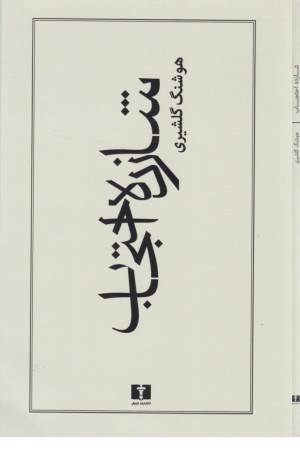 هوشنگ گلشیری
شازده احتجاب
شازده احتجاب | هوشنگ گلشیری